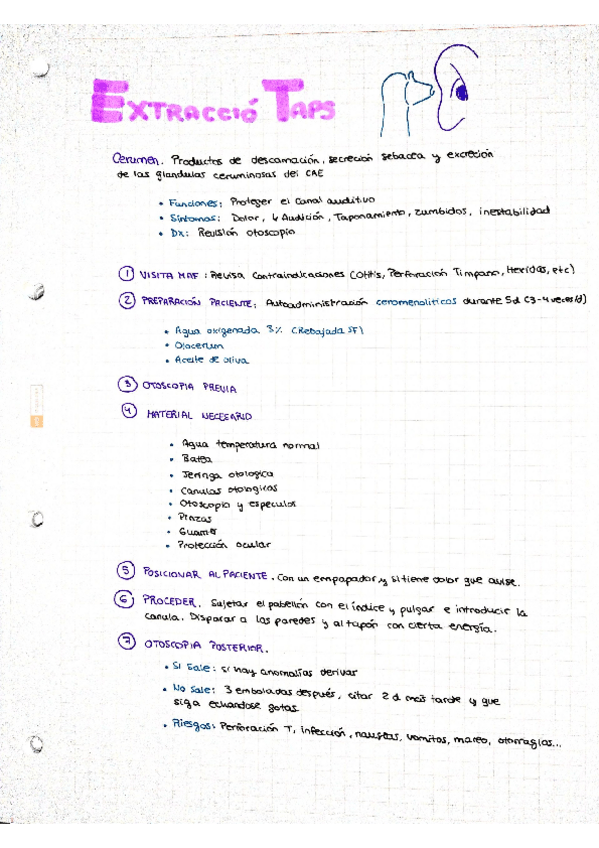 EXTRACCIÓ TAPS
Cerumen. Productos de descamación, secreción sebacea y excreción
de las glandulas ceruminosas del CAE
• Funciones: Proteger el canal auditivo
• Síntomas: Dolor, ↓ Audición, Taponamiento, zumbidos, inestabilidad
• Dx: Revisión otoscopio
① VISITA MAF: Revisa contraindicaciones (Otitis, Perforación Timpano, Heridas, etc)
② PREPARACIÓN PACIENTE: Autoadministración ceromenolíticos durante 5d (3-4 veces/d)
• Agua oxigenada 3% (Rebajada SF)
• Otocerum
• Aceite de oliva
③ OTOSCOPIA PREVIA
④ MATERIAL NECESARIO
• Agua temperatura normal
• Batea
• Jeringa otologica
• Canulas otologicas
• Otoscopio y especulos
• Pinzas
• Guantes
• Protección ocular
⑤ POSICIONAR AL PACIENTE. Con un empapador y si tiene dolor que avise.
⑥ PROCEDER. Sujetar el pabellón con el índice y pulgar e introducir la
canula. Disparar a las paredes y al tapón con cierta energía.
⑦ OTOSCOPIA POSTERIOR.
• Si sale: si hay anomalías derivar
• No sale: 3 emboladas después, citar 2 d más tarde y que
siga echandose gotas
• Riesgos: Perforación T, infección, nauseas, vomitos, mareo, otorragias...